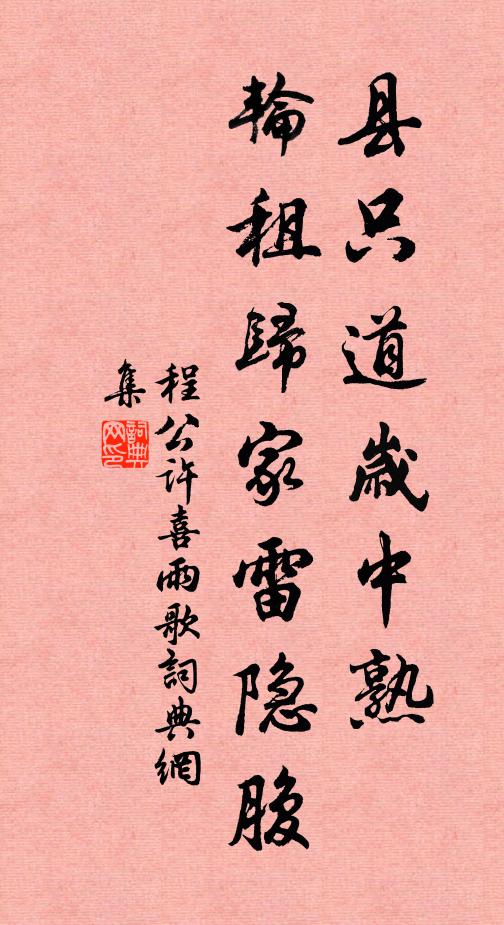 县只道歲中熟
輪租歸家雷隐腹
程公许喜雨歌詞典網
集
詞典網印